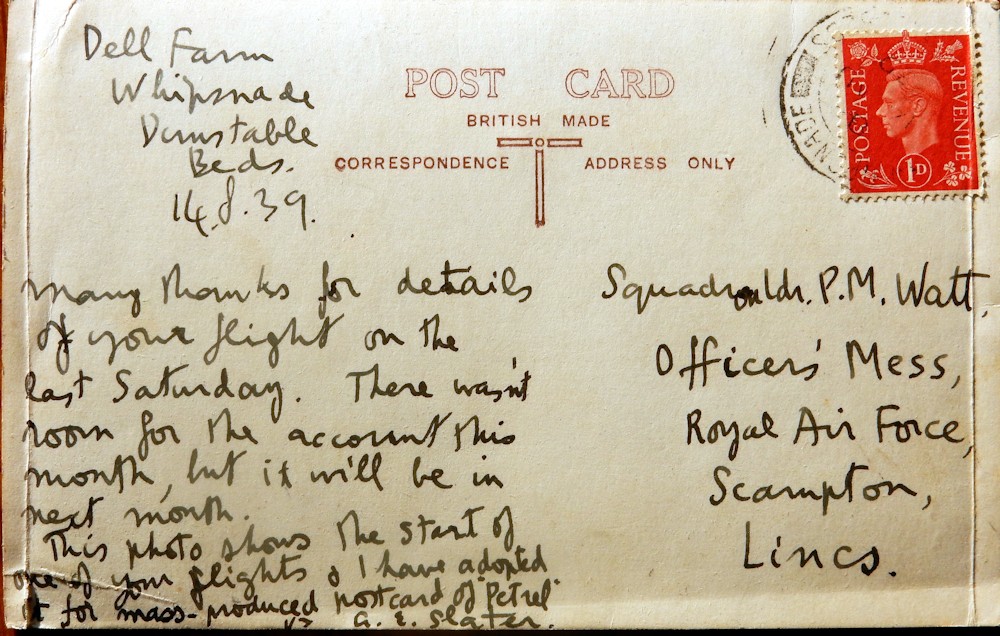 Dell Farm
Whipsnade
Dunstable
Beds.
14.8.39.
POST CARD
BRITISH MADE
CORRESPONDENCE ADDRESS ONLY
NADE
POSTAGE
REVENUE
1D
many thanks for details
of your flight on the
last Saturday. There wasn't
room for the account this
month, but it will be in
next month.
This photo shows the start of
one of your flights & I have adopted
it for mass-produced postcard of "Petrel"
A. E. Slater.
Squadron Ldr. P.M. Watt,
Officers' Mess,
Royal Air Force,
Scampton,
Lincs.